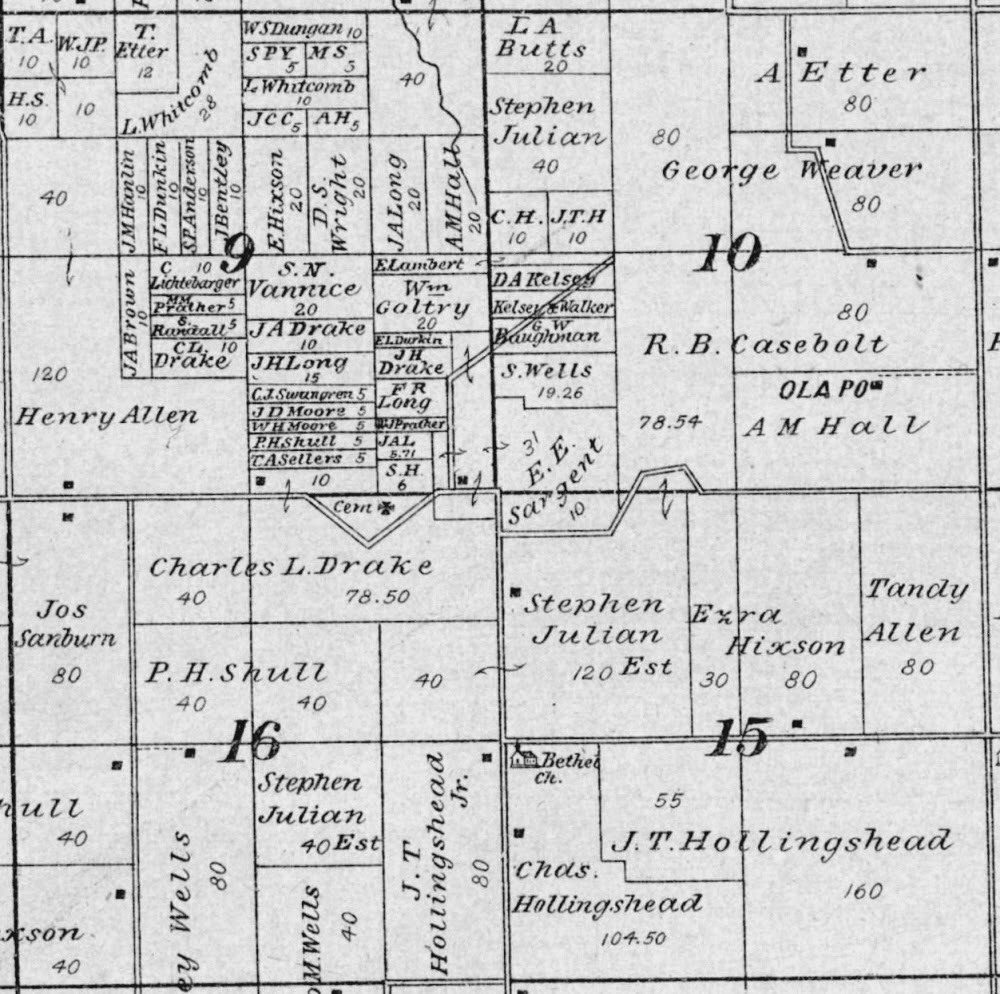 T.A.
10
W.J.P.
10
T.
Etter
12
H.S.
10
10
L.Whitcomb
28
W S Dungan 10
S P Y
5
M S
5
L Whitcomb
10
J C C 5
A H 5
40
L A
Butts
20
Stephen
Julian
40
80
A Etter
80
George Weaver
80
40
J M Hanlin
10
F L Dunkin
10
S P Anderson
10
J Bentley
10
E. Hixson
20
D. S.
Wright
20
J A Long
20
A M Hall
20
C. H.
10
J.T.H
10
9
10
J A Brown
10
C 10
Lichtebarger
M M
Prather 5
S.
Randall 5
C L. 10
Drake
S. N.
Vannice
20
J A Drake
10
J H Long
15
C J Swangren 5
J D Moore 5
W H Moore 5
P. H Shull 5
T A Sellers 5
10
E Lambert
Wm
Goltry
20
E L Durkin
J H
Drake
F R
Long
W J Prather
J A L
5.71
S. H.
6
D A Kelsey
Kelsey & Walker
G W
Baughman
S. Wells
19.26
80
R. B. Casebolt
OLA PO
78.54
A M Hall
120
Henry Allen
31
E. E.
Sargent
10
Cem
Charles L. Drake
40
78.50
Jos
Sanburn
80
P. H. Shull
40
40
40
Stephen
Julian
120 Est
Ezra
Hixson
30
80
Tandy
Allen
80
16
15
hull
40
xson
40
ey Wells
80
Stephen
Julian
40 Est
M. Wells
40
J. T.
Hollingshead
Jr.
80
Bethel
Ch.
55
J. T. Hollingshead
160
Chas.
Hollingshead
104.50